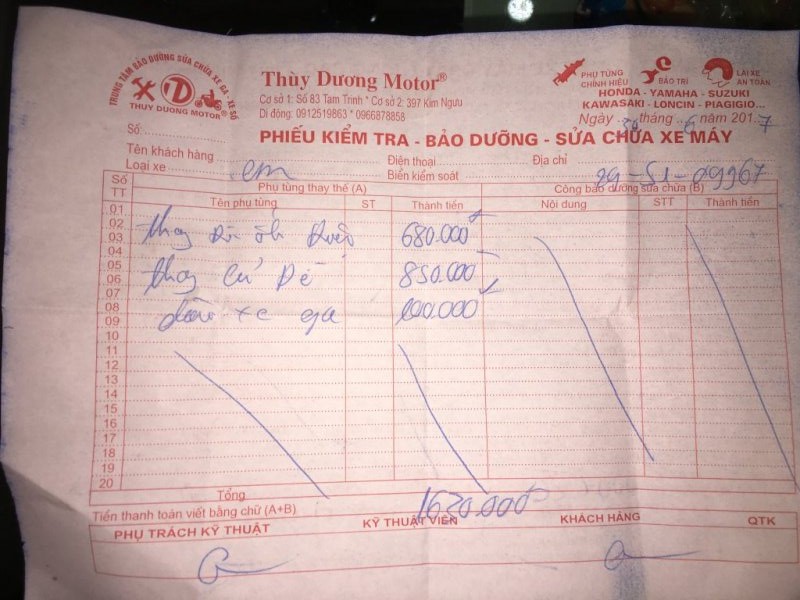 TRUNG TÂM BẢO DƯỠNG SỬA CHỮA XE GA - XE SỐ
THUY DUONG MOTOR®
Thùy Dương Motor®
Cơ sở 1: Số 83 Tam Trinh * Cơ sở 2: 397 Kim Ngưu
Di động: 0912519863 * 0966878858
PHỤ TÙNG CHÍNH HIỆU
BẢO TRÌ
LÁI XE AN TOÀN
HONDA - YAMAHA - SUZUKI
KAWASAKI - LONCIN - PIAGIGIO...
Ngày tháng 6 năm 2017
Số:
PHIẾU KIỂM TRA - BẢO DƯỠNG - SỬA CHỮA XE MÁY
Tên khách hàng Điện thoại Địa chỉ
Loại xe em Biển kiểm soát 29-S1-09967
Số TT Phụ tùng thay thế (A) Công bảo dưỡng sửa chữa (B)
Tên phụ tùng ST Thành tiền Nội dung STT Thành tiền
01
02
03 thay 680.000
04
05
06 thay củ Đề 850.000
07
08
09 dầu xe ga 100.000
10
11
12
13
14
15
16
17
18
19
20
Tổng
Tiền thanh toán viết bằng chữ (A+B) 1630.000
PHỤ TRÁCH KỸ THUẬT KỸ THUẬT VIÊN KHÁCH HÀNG QTK